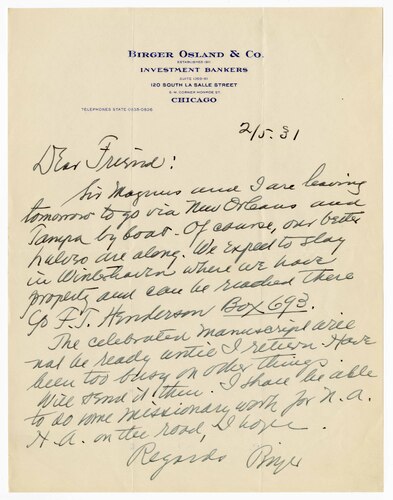 BIRGER OSLAND & CO.
ESTABLISHED 1911
INVESTMENT BANKERS
SUITE
120 SOUTH LA SALLE STREET
S.W. CORNER MONROE ST.
CHICAGO
TELEPHONES STATE 0835-0836
2/5-31
Dear Friend:
Sir Magnus and I are leaving
tomorrow to go via New Orleans and
Tampa by boat. Of course, our better
halves are along. We expect to stay
in Winterhaven where we have
property and can be reached there
c/o F.T. Henderson Box 693.
The celebrated manuscript will
not be ready until I return. Have
been too busy on other things.
Will send it then. I shall be able
to do some missionary work for N.A.
H.A. on the road, I hope.
Regards Birger